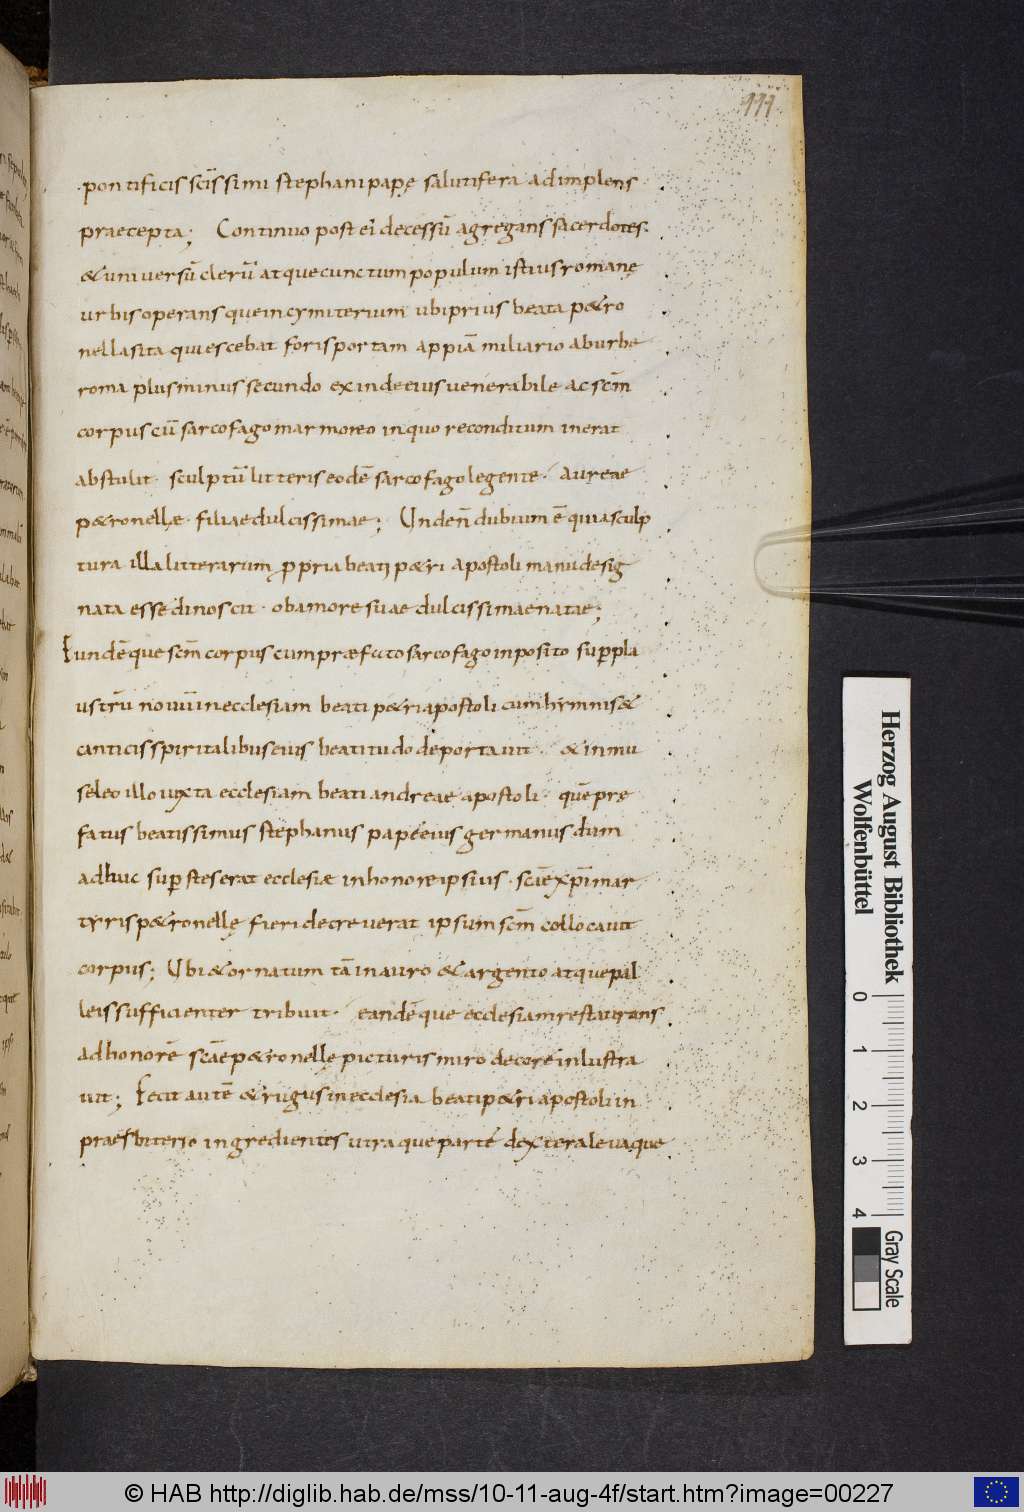 111
pontificis sc̄issimi stephani papę salutifera adimplens
praecepta; Continuo post ei' decessū agregans sacerdotes.
& universū clerū atque cunctum populum istius romanę
urbis operans que in cymiterium ubi prius beata p&ro
nella sita quiescebat foris portam appiā miliario ab urbe
roma plus minus secundo exinde eius venerabile ac sc̄m
corpus cū sarcofago marmoreo in quo reconditum inerat
abstulit · sculptū litteris eodē sarcofago legente · Aureae
p&ronellę · filiae dulcissimae; Unde n̄ dubium ē quia sculp
tura illa litterarum ꝓpria beati p&ri apostoli manu desig
nata esse dinoscit · ob amore suae dulcissimae natae;
Eundēque sc̄m corpus cum præfato sarcofago inposito suꝑ pla
ustrū novū in ecclesiam beati p&ri apostoli cum hymnis &
canticis spiritalibus eius beatitudo deportavit · & in mu
seleo illo iuxta ecclesiam beati andreae apostoli · quē prę
fatus beatissimus stephanus papa eius germanus dum
adhuc suꝑstes erat ecclesiæ in honore ipsius · sc̄ē xp̄i mar
tyris p&ronellę fieri decreverat ipsum sc̄m collocavit
corpus; Ubi & ornatum tā in auro & argento atque pal
leis sufficienter tribuit · eandēque ecclesiam restaurans
ad honorē sc̄ae p&ronellę picturis miro decore inlustra
vit; Fecit autē & rugus in ecclesia beati p&ri apostoli in
praesbiterio ingredientes utraque parte dextera levaque
Herzog August Bibliothek
Wolfenbüttel
0 1 2 3 4
Gray Scale
© HAB http://diglib.hab.de/mss/10-11-aug-4f/start.htm?image=00227